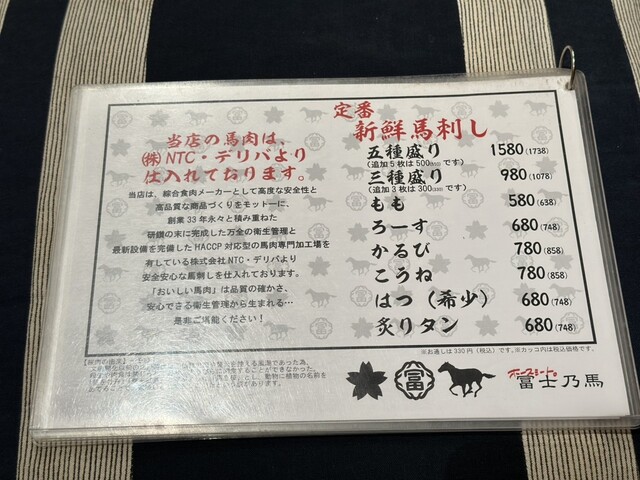 当店の馬肉は、
㈱NTC・デリバより
仕入れております。
当店は、綜合食肉メーカーとして高度な安全性と
高品質な商品づくりをモットーに、
創業33年永々と積み重ねた
研鑽の末に完成した万全の衛生管理と
最新設備を完備したHACCP対応型の馬肉専門加工場を
有している株式会社NTC・デリバより
安全安心な馬刺しを仕入れております。
「おいしい馬肉」は品質の確かさ、
安心できる衛生管理から生まれる…
是非ご堪能ください！
定番
新鮮馬刺し
五種盛り 1580(1738)
(追加5枚は500(550)です)
三種盛り 980(1078)
(追加3枚は300(330)です)
もも 580(638)
ろーす 680(748)
かるび 780(858)
こうね 780(858)
はつ（希少） 680(748)
炙りタン 680(748)
※お通しは330円（税込）です。※カッコ内は税込価格です。
富
ホースミート。
冨士乃馬